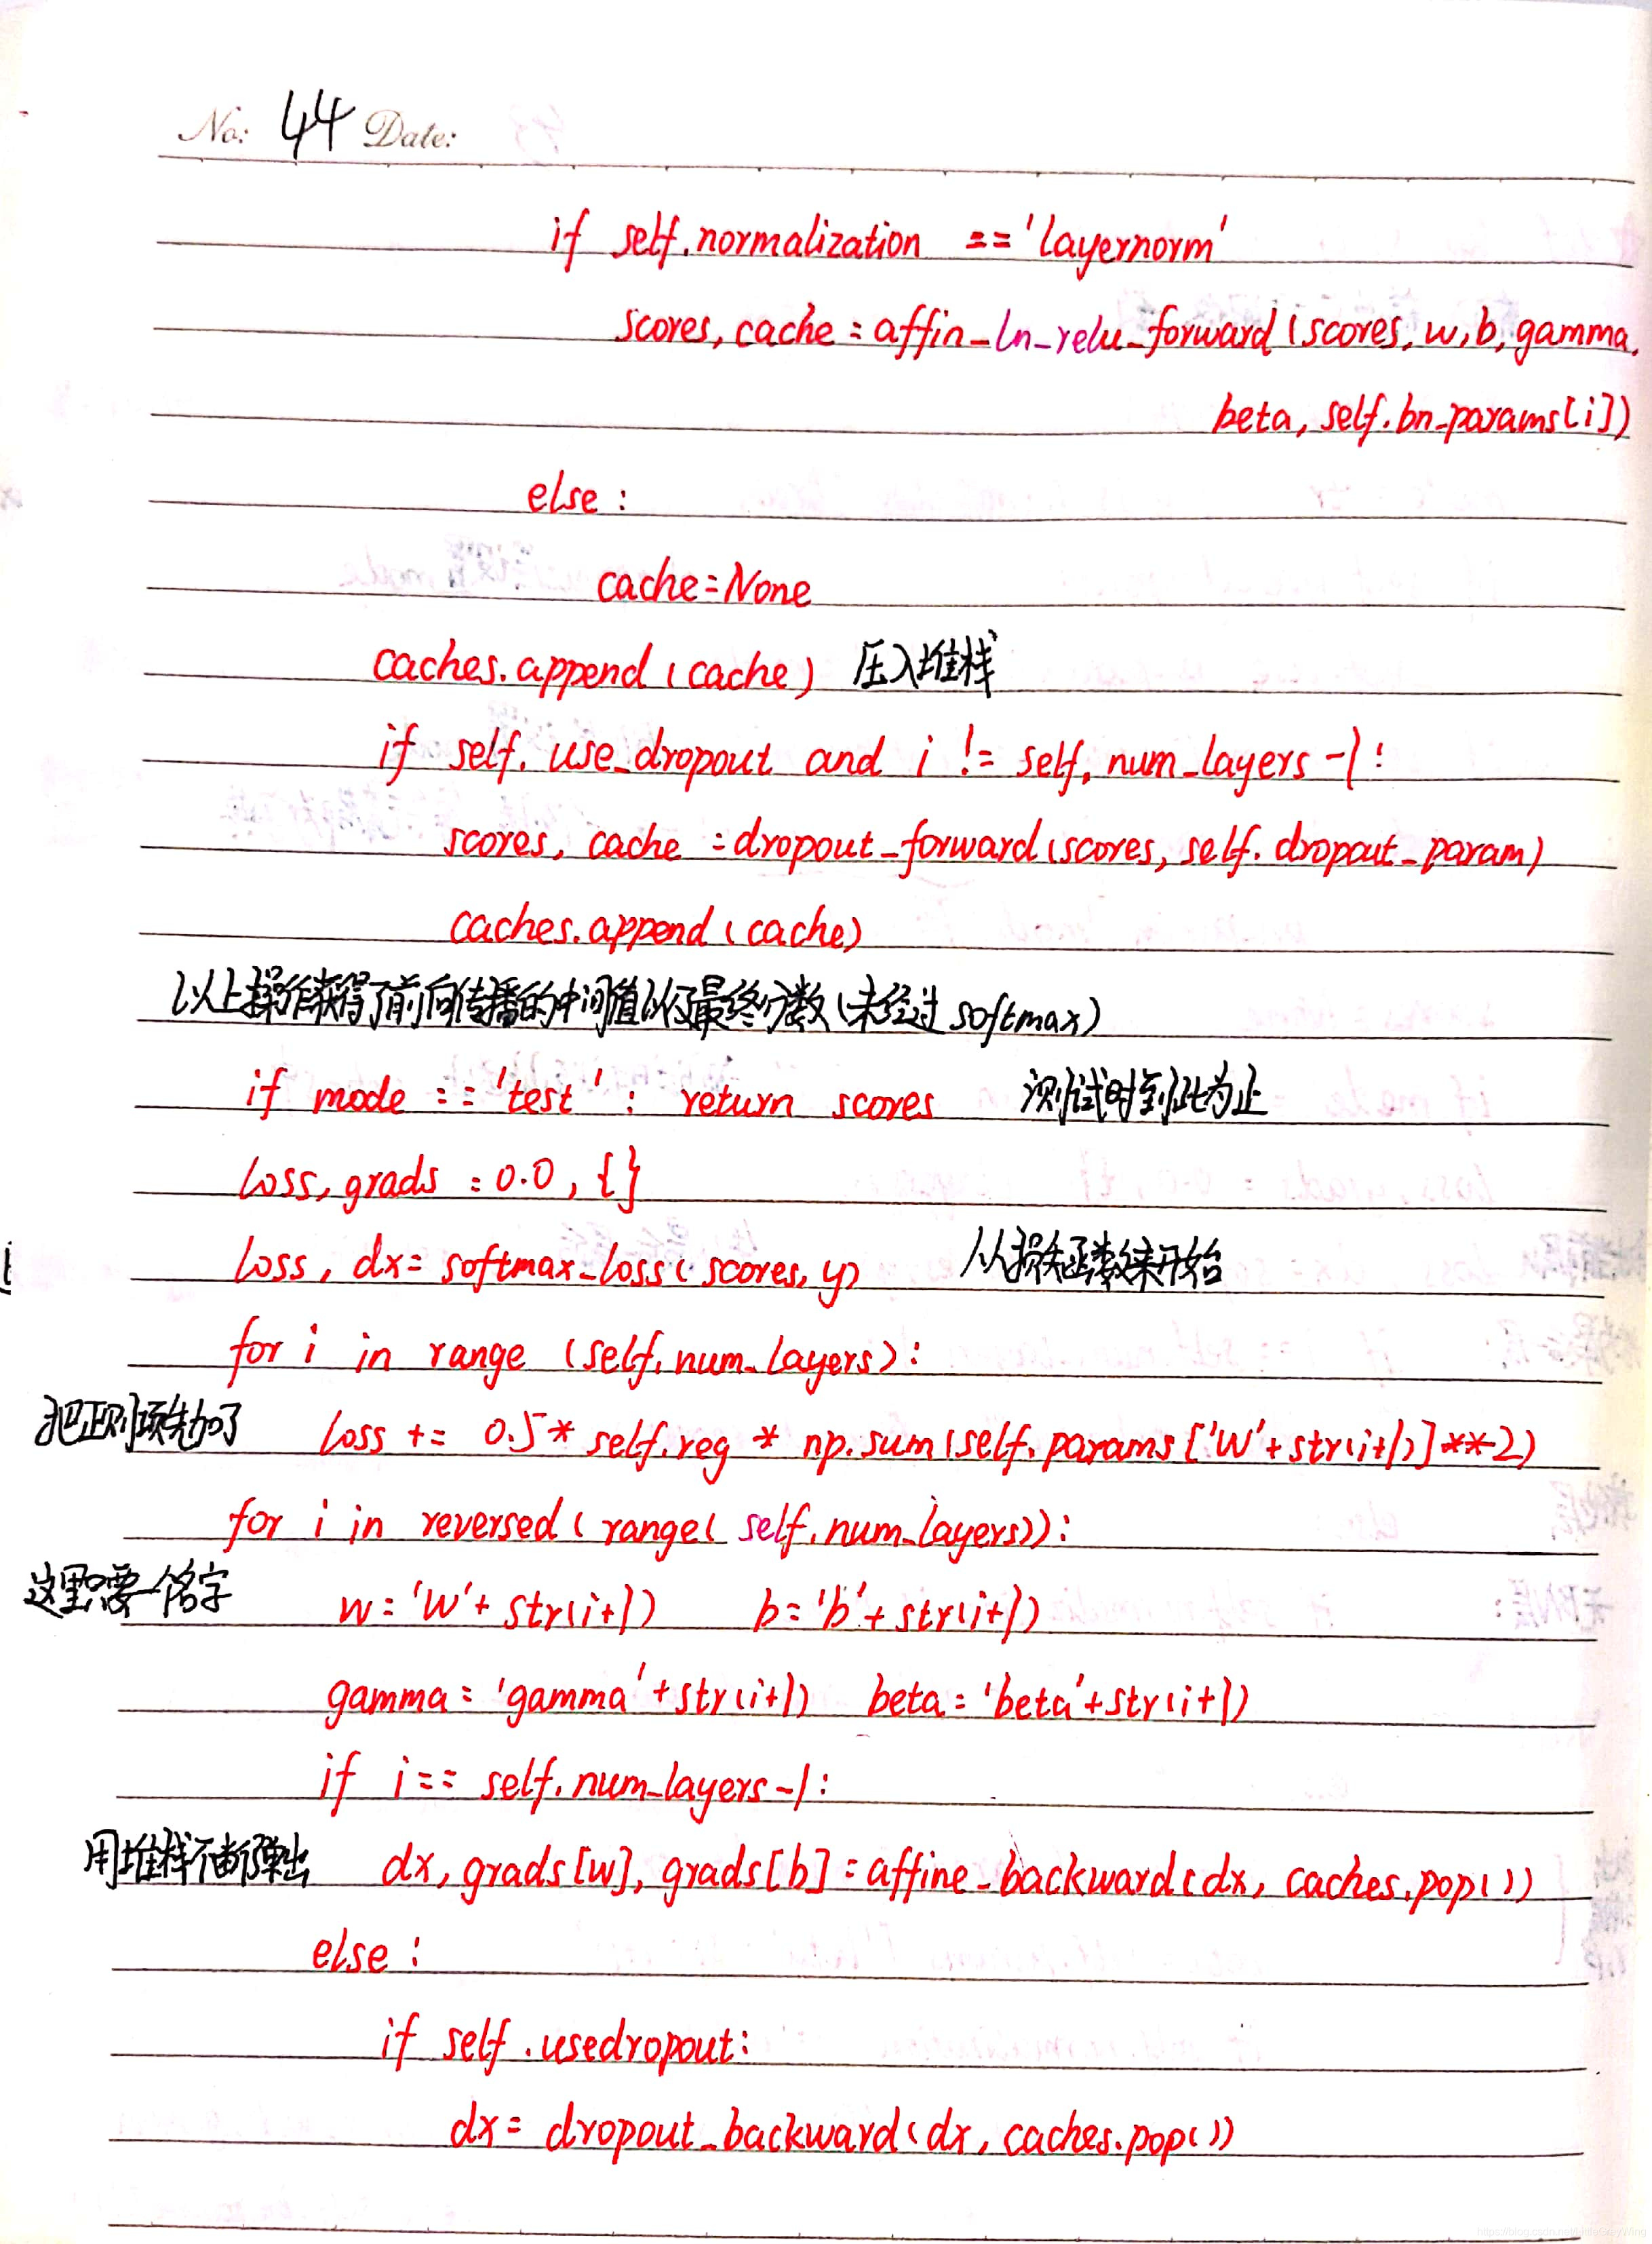 No: 44 Date:
if self.normalization =='layernorm'
scores, cache = affin_ln_relu_forward(scores, w, b, gamma,
beta, self.bn_params[i])
else:
cache=None
caches.append(cache) 压入堆栈
if self.use_dropout and i != self.num_layers-1:
scores, cache = dropout_forward(scores, self.dropout_param)
caches.append(cache)
以上操作获得了前向传播的中间值以及最终分数(未经过softmax)
if mode == 'test': return scores 测试时到此为止
loss, grads = 0.0, {}
loss, dx = softmax_loss(scores, y) 从损失函数来开始
for i in range (self.num_layers):
把正则项先加了 loss += 0.5 * self.reg * np.sum(self.params['W'+str(i+1)]**2)
for i in reversed(range(self.num_layers)):
这里只要一个名字 w = 'W'+ str(i+1) b = 'b'+ str(i+1)
gamma = 'gamma'+str(i+1) beta = 'beta'+str(i+1)
if i == self.num_layers-1:
用堆栈不断弹出 dx, grads[w], grads[b] = affine_backward(dx, caches.pop())
else:
if self.usedropout:
dx = dropout_backward(dx, caches.pop())